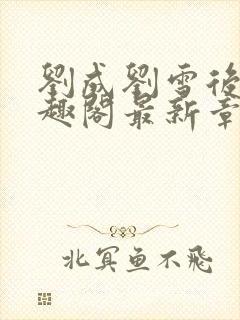 劉成劉雪後
趣閣最新章
北冥鱼不飛